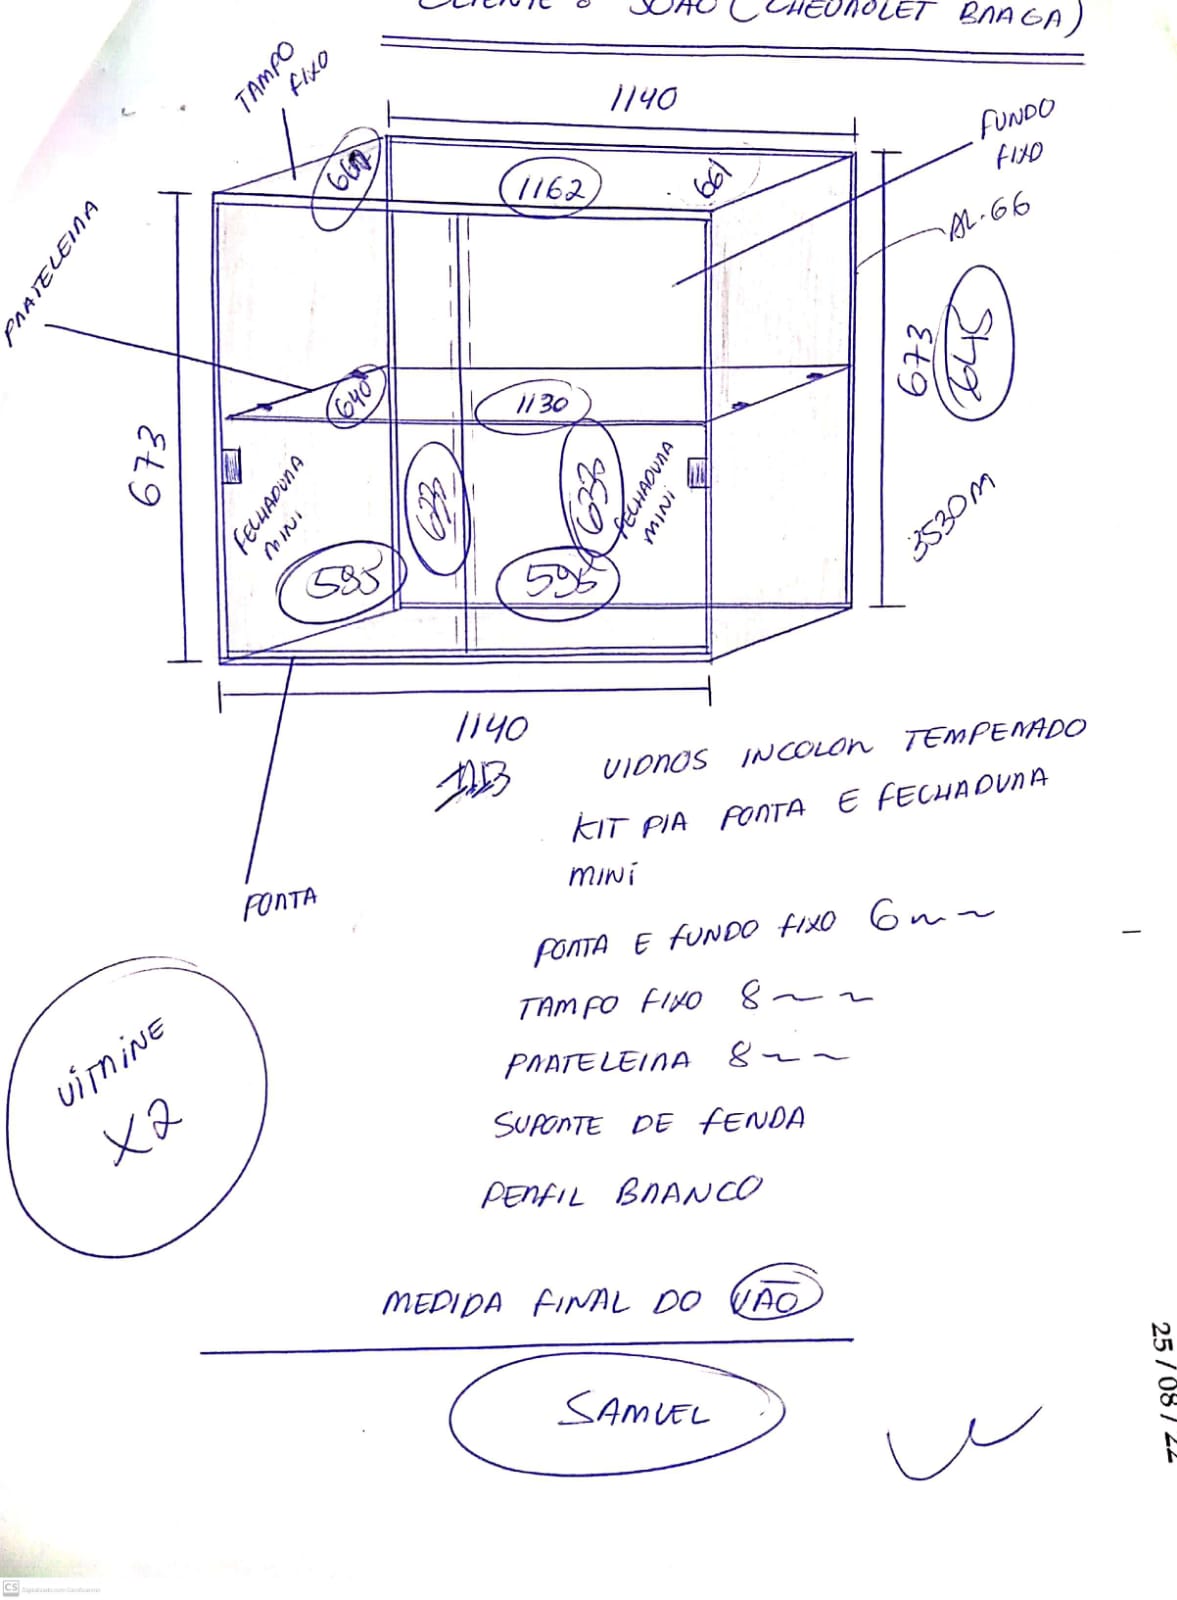 CLIENTE : JOÃO (CHEVROLET BRAGA)
TAMPO
FIXO
1140
FUNDO
FIXO
1162
661
AL.66
PRATELEIRA
673
645
640
1130
673
FECHADURA
MINI
FECHADURA
MINI
3530M
595
595
1140
VIDROS INCOLOR TEMPERADO
KIT PIA PORTA E FECHADURA
MINI
PORTA
PORTA E FUNDO FIXO 6mm
TAMPO FIXO 8mm
PRATELEIRA 8mm
SUPORTE DE FENDA
PERFIL BRANCO
VITRINE
X2
MEDIDA FINAL DO VÃO
SAMUEL
25/08/22
CS Digitalizado com CamScanner